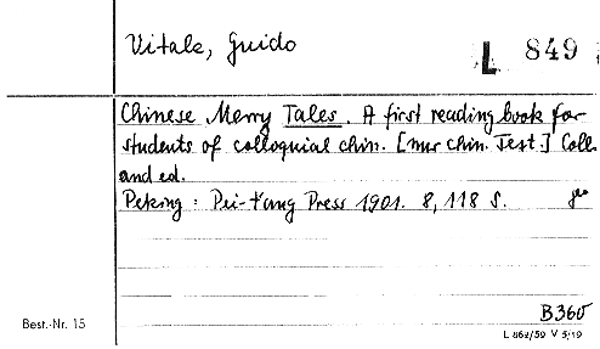 Vitale, Guido
L 849
Chinese Merry Tales. A first reading book for
students of colloquial chin. [nur chin. Text.] Coll.
and ed.
Peking: Pei-t'ang Press 1901. 8, 118 S.
B360
Best.-Nr. 15
L 862/59 V 5/19